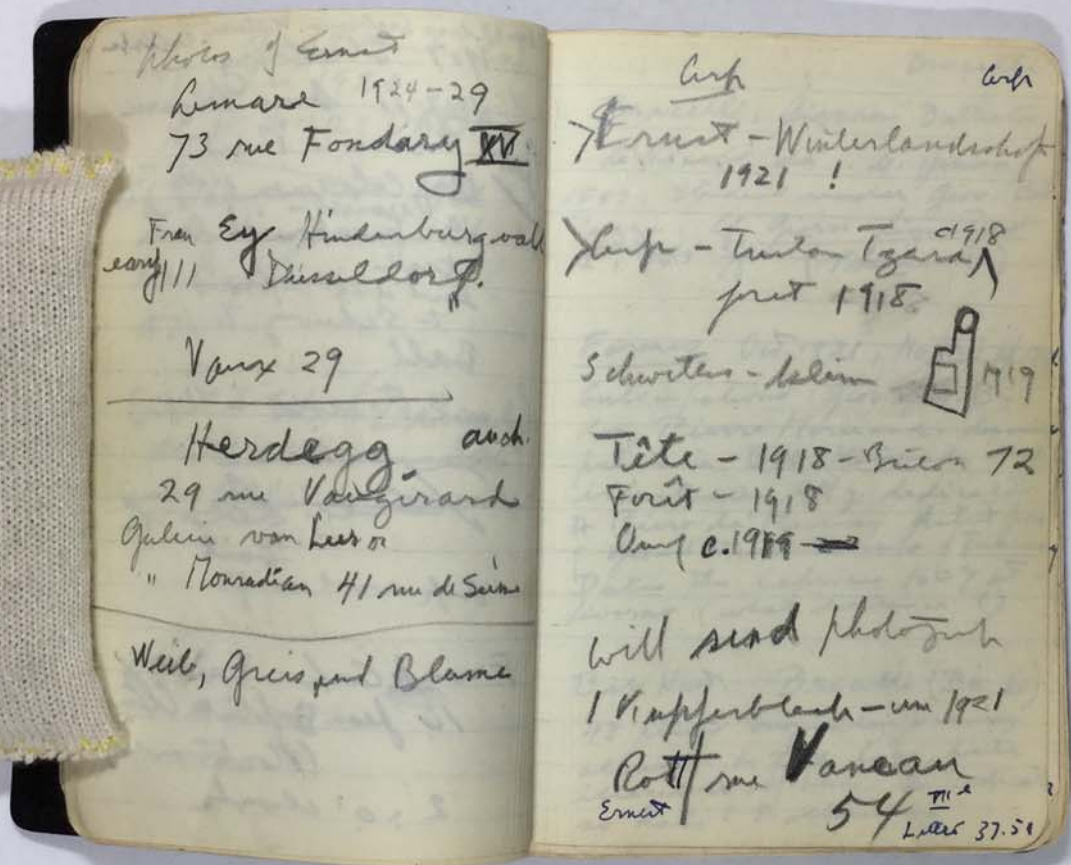 photos of Ernst
Lemare 1924-29
73 rue Fondary XV
Frau Ey Hindenburgwall
early 111 Duesseldorf.
Vaux 29
Herdegg auch
29 rue Vaugirard
Galerie van Leer or
" Mouradian 41 rue de Seine
Weib, Greis und Blume
Arp
Arp
Ernst - Winterlandschaft
1921 !
Arp - Tristan Tzara c1918
foret 1918
Schwitters - klein 1919
Tête - 1918 - 72
Forêt - 1918
c.1919
will send photograph
1 Kupferblech - um 1921
Rott rue Vaneau
Ernst 54 VIIe
Littré 37.51